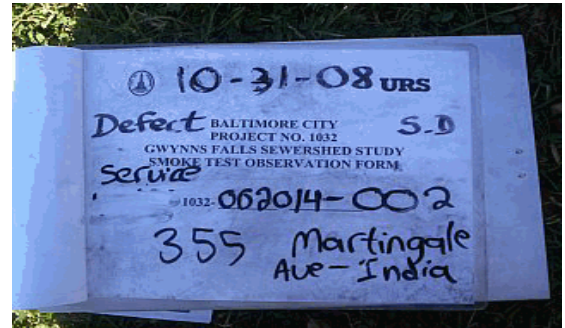 10-31-08 URS
Defect BALTIMORE CITY S.D
PROJECT NO. 1032
GWYNNS FALLS SEWERSHED STUDY
SMOKE TEST OBSERVATION FORM
Service
1032-062014-002
355 Martingale
Ave-India